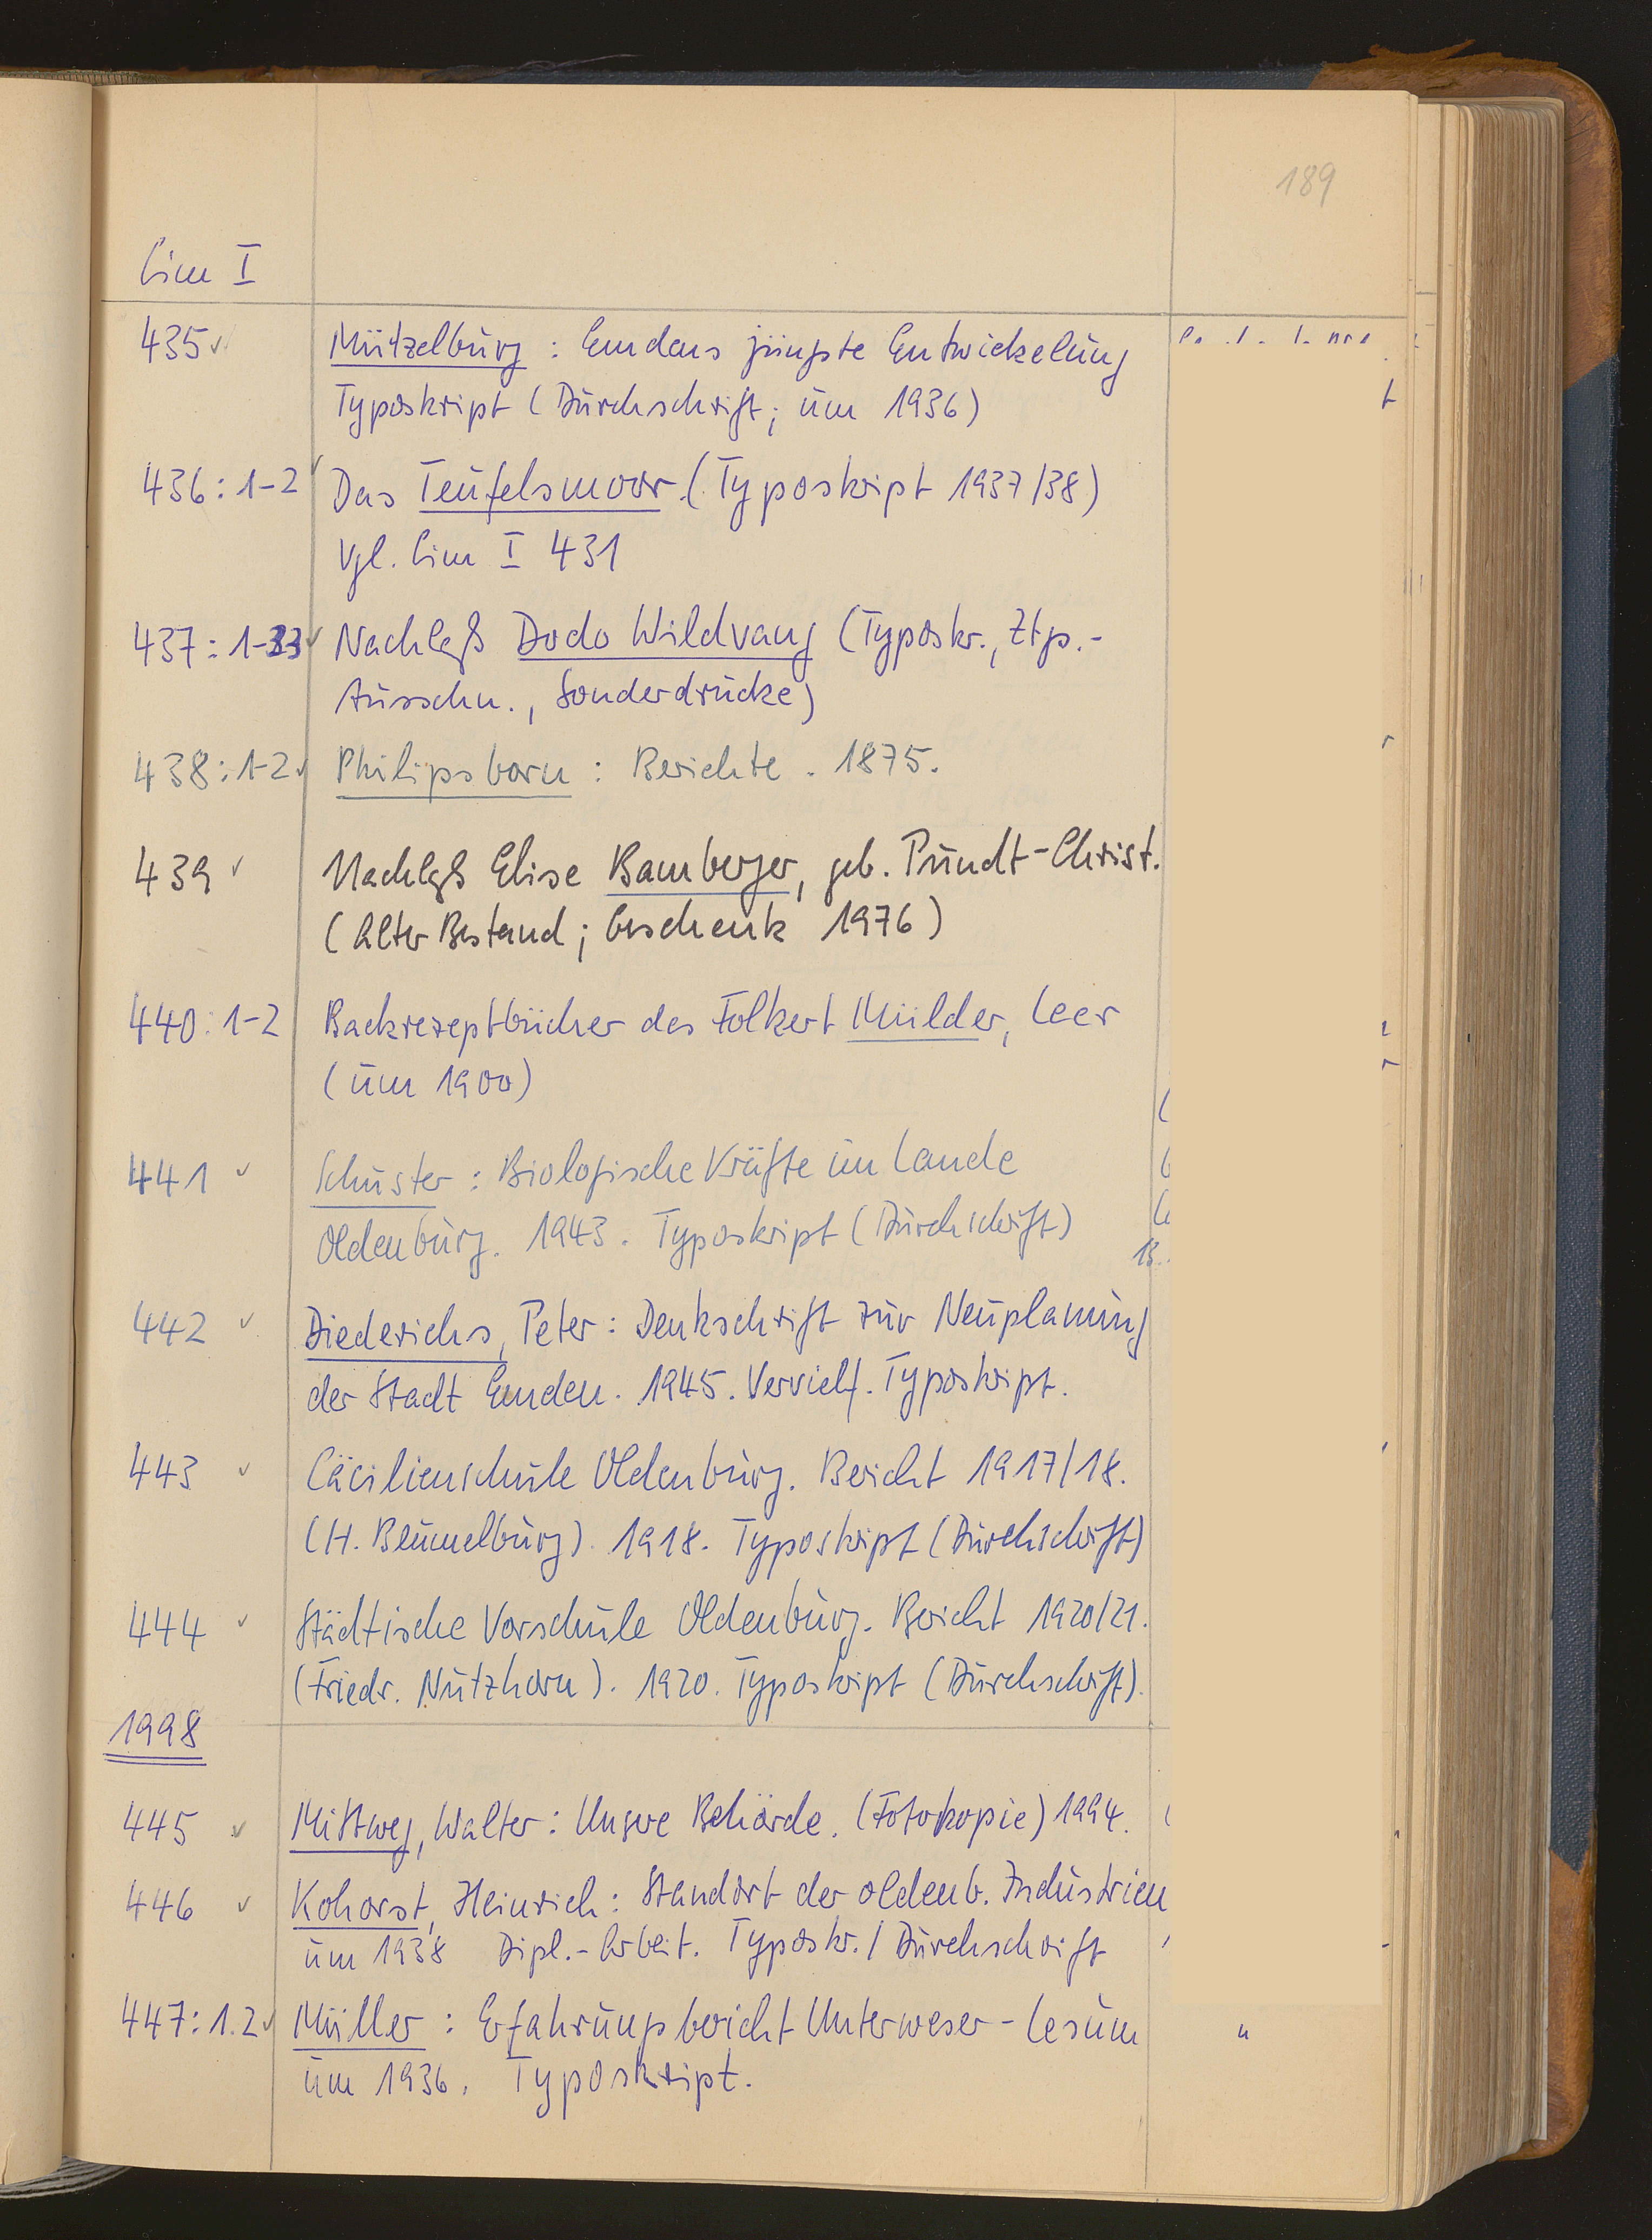 189
Cim I
435 ✓ Mützelburg: Emdens jüngste Entwickelung
Typoskript (Durchschrift; um 1936)
436:1-2 ✓ Das Teufelsmoor. (Typoskript 1937/38)
Vgl. Cim I 431
437:1-33 ✓ Nachlaß Dodo Wildvang (Typoskr., Ztg.-
Ausschn., Sonderdrucke)
438:1-2 ✓ Philipsborn: Berichte. 1875.
439 ✓ Nachlaß Elise Bamberger, geb. Pundt-Christ.
(Alter Bestand; Geschenk 1976)
440:1-2 Backrezeptbücher des Folkert Mülder, Leer
(um 1900)
441 ✓ Schuster: Biologische Kräfte im Lande
Oldenburg. 1943. Typoskript (Durchschrift)
442 ✓ Diederichs, Peter: Denkschrift zur Neuplanung
der Stadt Emden. 1945. Vervielf. Typoskript.
443 ✓ Cäcilienschule Oldenburg. Bericht 1917/18.
(H. Blumelburg). 1918. Typoskript (Durchschrift)
444 ✓ Städtische Vorschule Oldenburg. Bericht 1920/21.
(Friedr. Nutzhorn). 1920. Typoskript (Durchschrift).
1998
445 ✓ Mittweg, Walter: Unsere Behörde. (Fotokopie) 1994.
446 ✓ Kohorst, Heinrich: Standort der oldenb. Industrien
um 1938 Dipl.-Arbeit. Typoskr. / Durchschrift
447:1.2 ✓ Müller: Erfahrungsbericht Unterweser-Lesum "
um 1936. Typoskript.